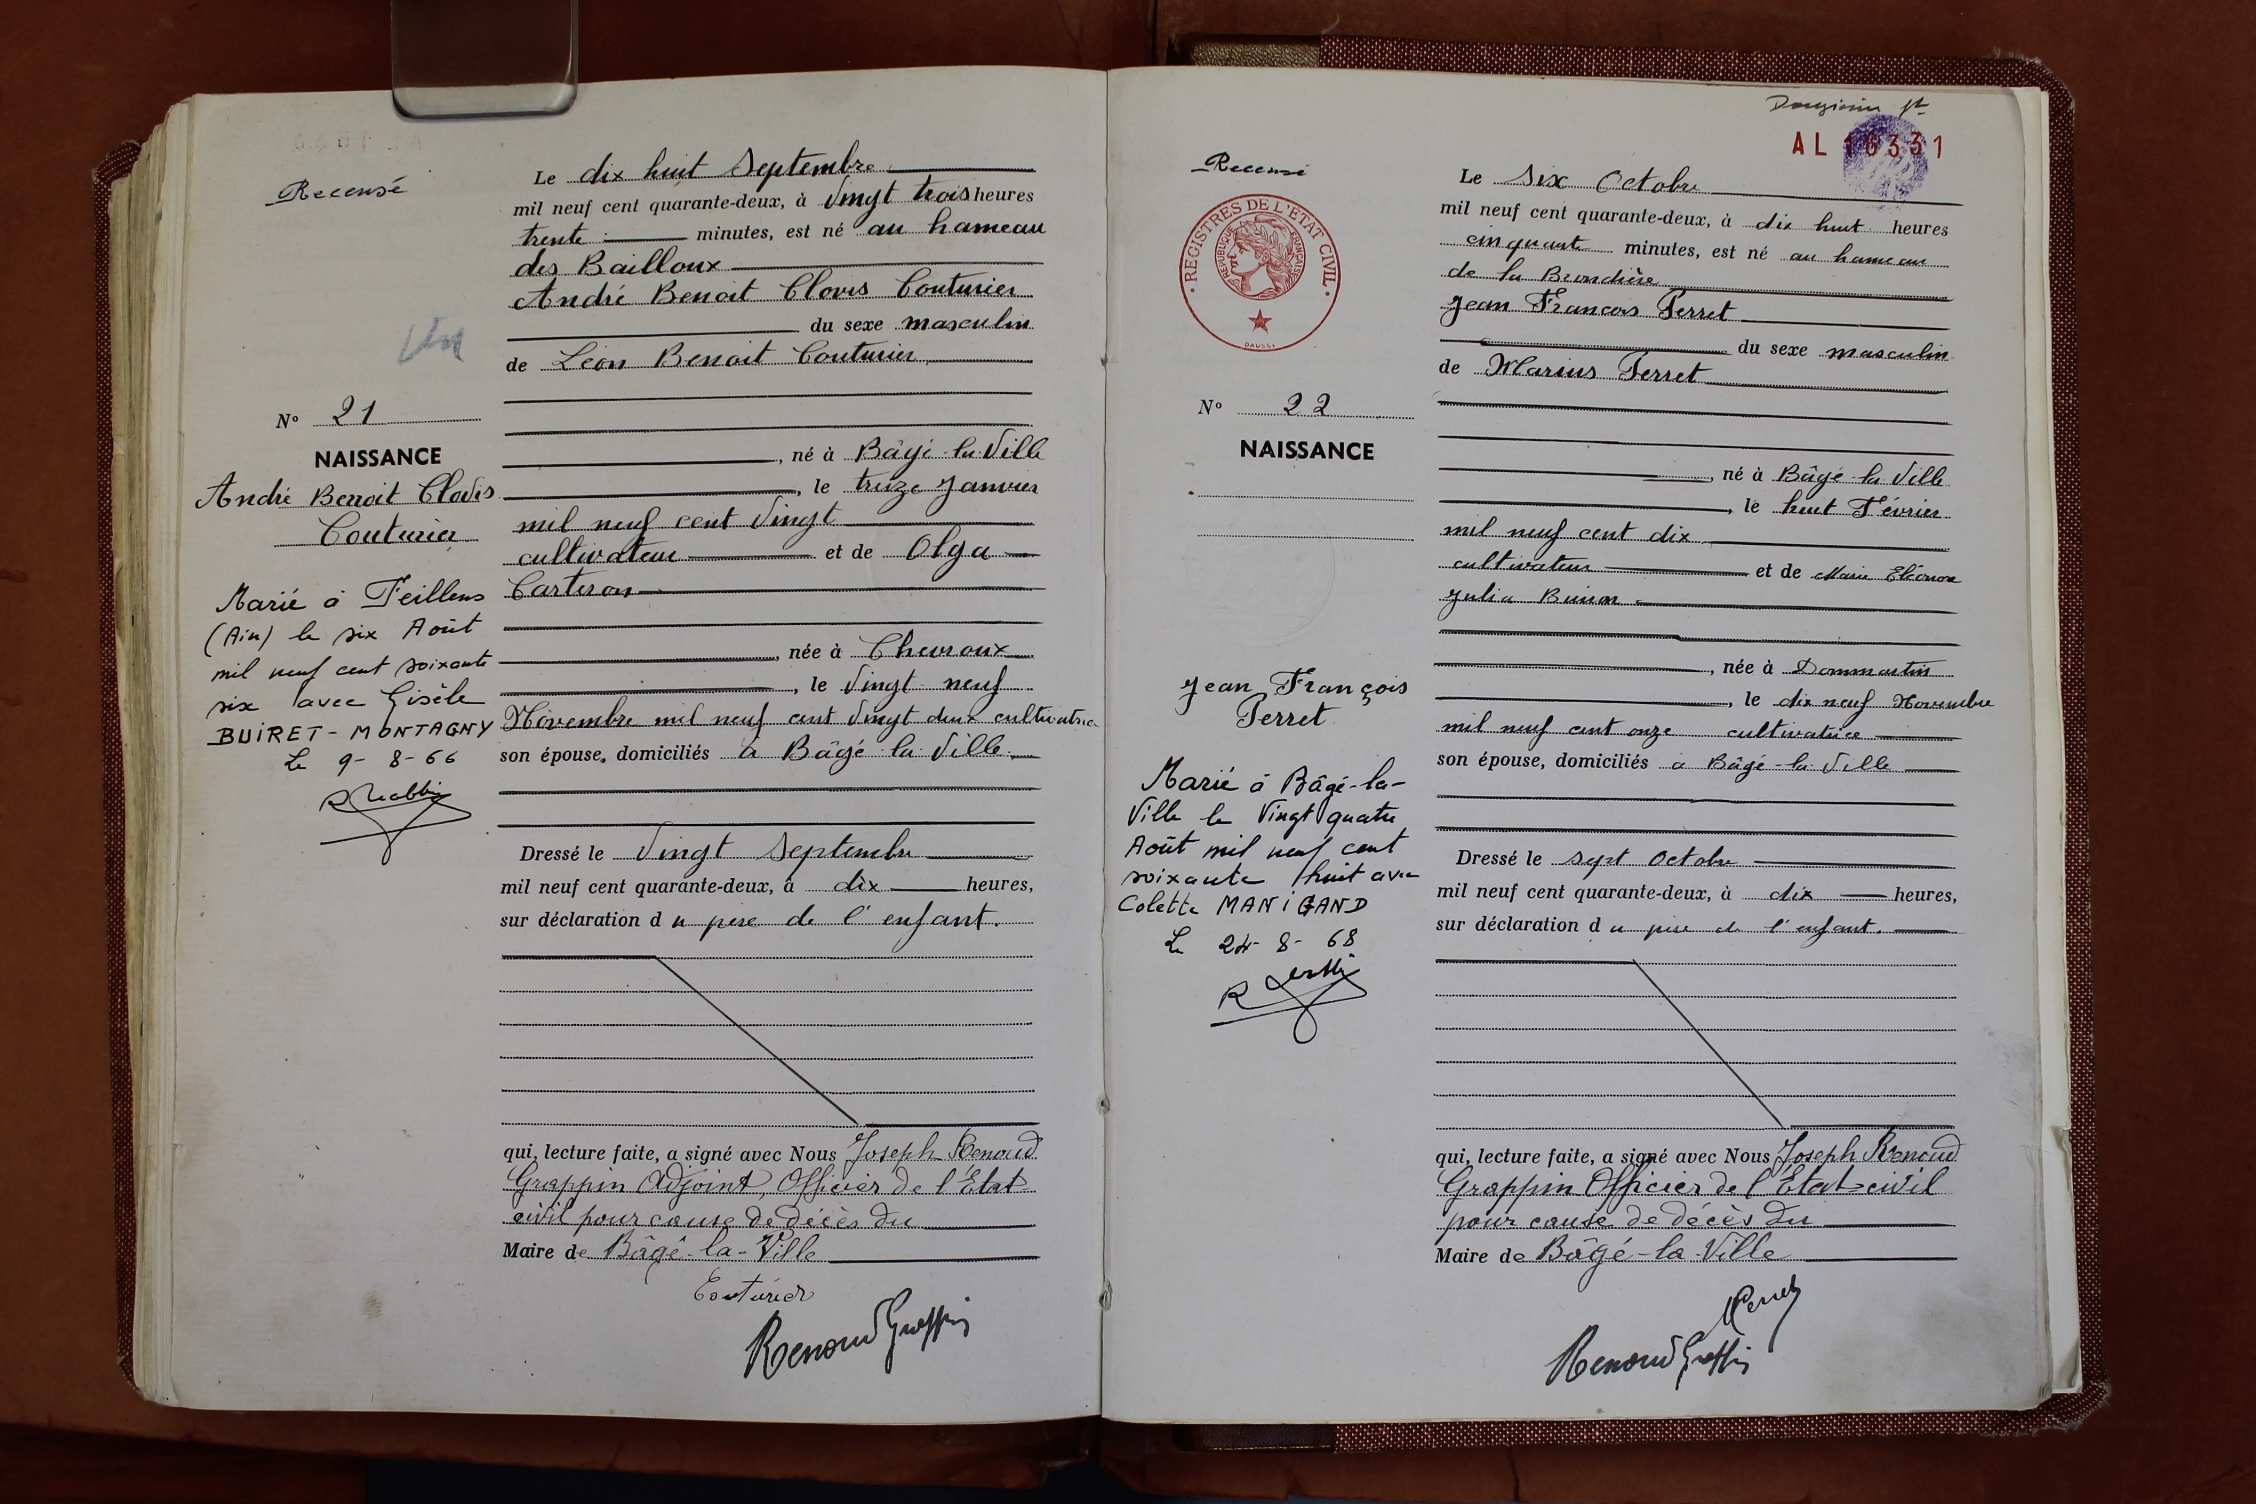 Recensé
Nº 21
NAISSANCE
André Benoit Clovis
Couturier
Marié à Feillens
(Ain) le six Août
mil neuf cent soixante
six avec Gisèle
BUIRET - MONTAGNY
Le 9-8-66
Le dix huit Septembre
mil neuf cent quarante-deux, à vingt trois heures
trente minutes, est né au hameau
des Bailloux
André Benoit Clovis Couturier
du sexe masculin
de Léon Benoit Couturier
, né à Bâgé-la-Ville
, le treize Janvier
mil neuf cent vingt
cultivateur et de Olga
Carteron
, née à Chevroux
, le vingt neuf
Novembre mil neuf cent vingt deux cultivatrice
son épouse, domiciliés à Bâgé-la-Ville
Dressé le vingt Septembre
mil neuf cent quarante-deux, à dix heures,
sur déclaration du père de l'enfant.
qui, lecture faite, a signé avec Nous Joseph Renoud
Grappin Adjoint, Officier de l'Etat
civil pour cause de décès du
Maire de Bâgé-la-Ville
Couturier
Renoud Grappin
AL 16331
Recensé
REGISTRES DE L'ETAT CIVIL
REPUBLIQUE FRANÇAISE
DAUSSI
Nº 22
NAISSANCE
Jean François
Perret
Marié à Bâgé-la-
Ville le vingt quatre
Août mil neuf cent
soixante huit avec
Colette MANIGAND
Le 24-8-68
Le Six Octobre
mil neuf cent quarante-deux, à dix huit heures
cinquante minutes, est né au hameau
de la Brondière
Jean François Perret
du sexe masculin
de Marius Perret
, né à Bâgé la Ville
, le huit Février
mil neuf cent dix
cultivateur et de Marie Eléonore
Julia
, née à Dommartin
, le dix neuf Novembre
mil neuf cent onze cultivatrice
son épouse, domiciliés à Bâgé-la-Ville
Dressé le sept Octobre
mil neuf cent quarante-deux, à dix heures,
sur déclaration du père de l'enfant.
qui, lecture faite, a signé avec Nous Joseph Renoud
Grappin Officier de l'Etat civil
pour cause de décès du
Maire de Bâgé-la-Ville
Perret
Renoud Grappin